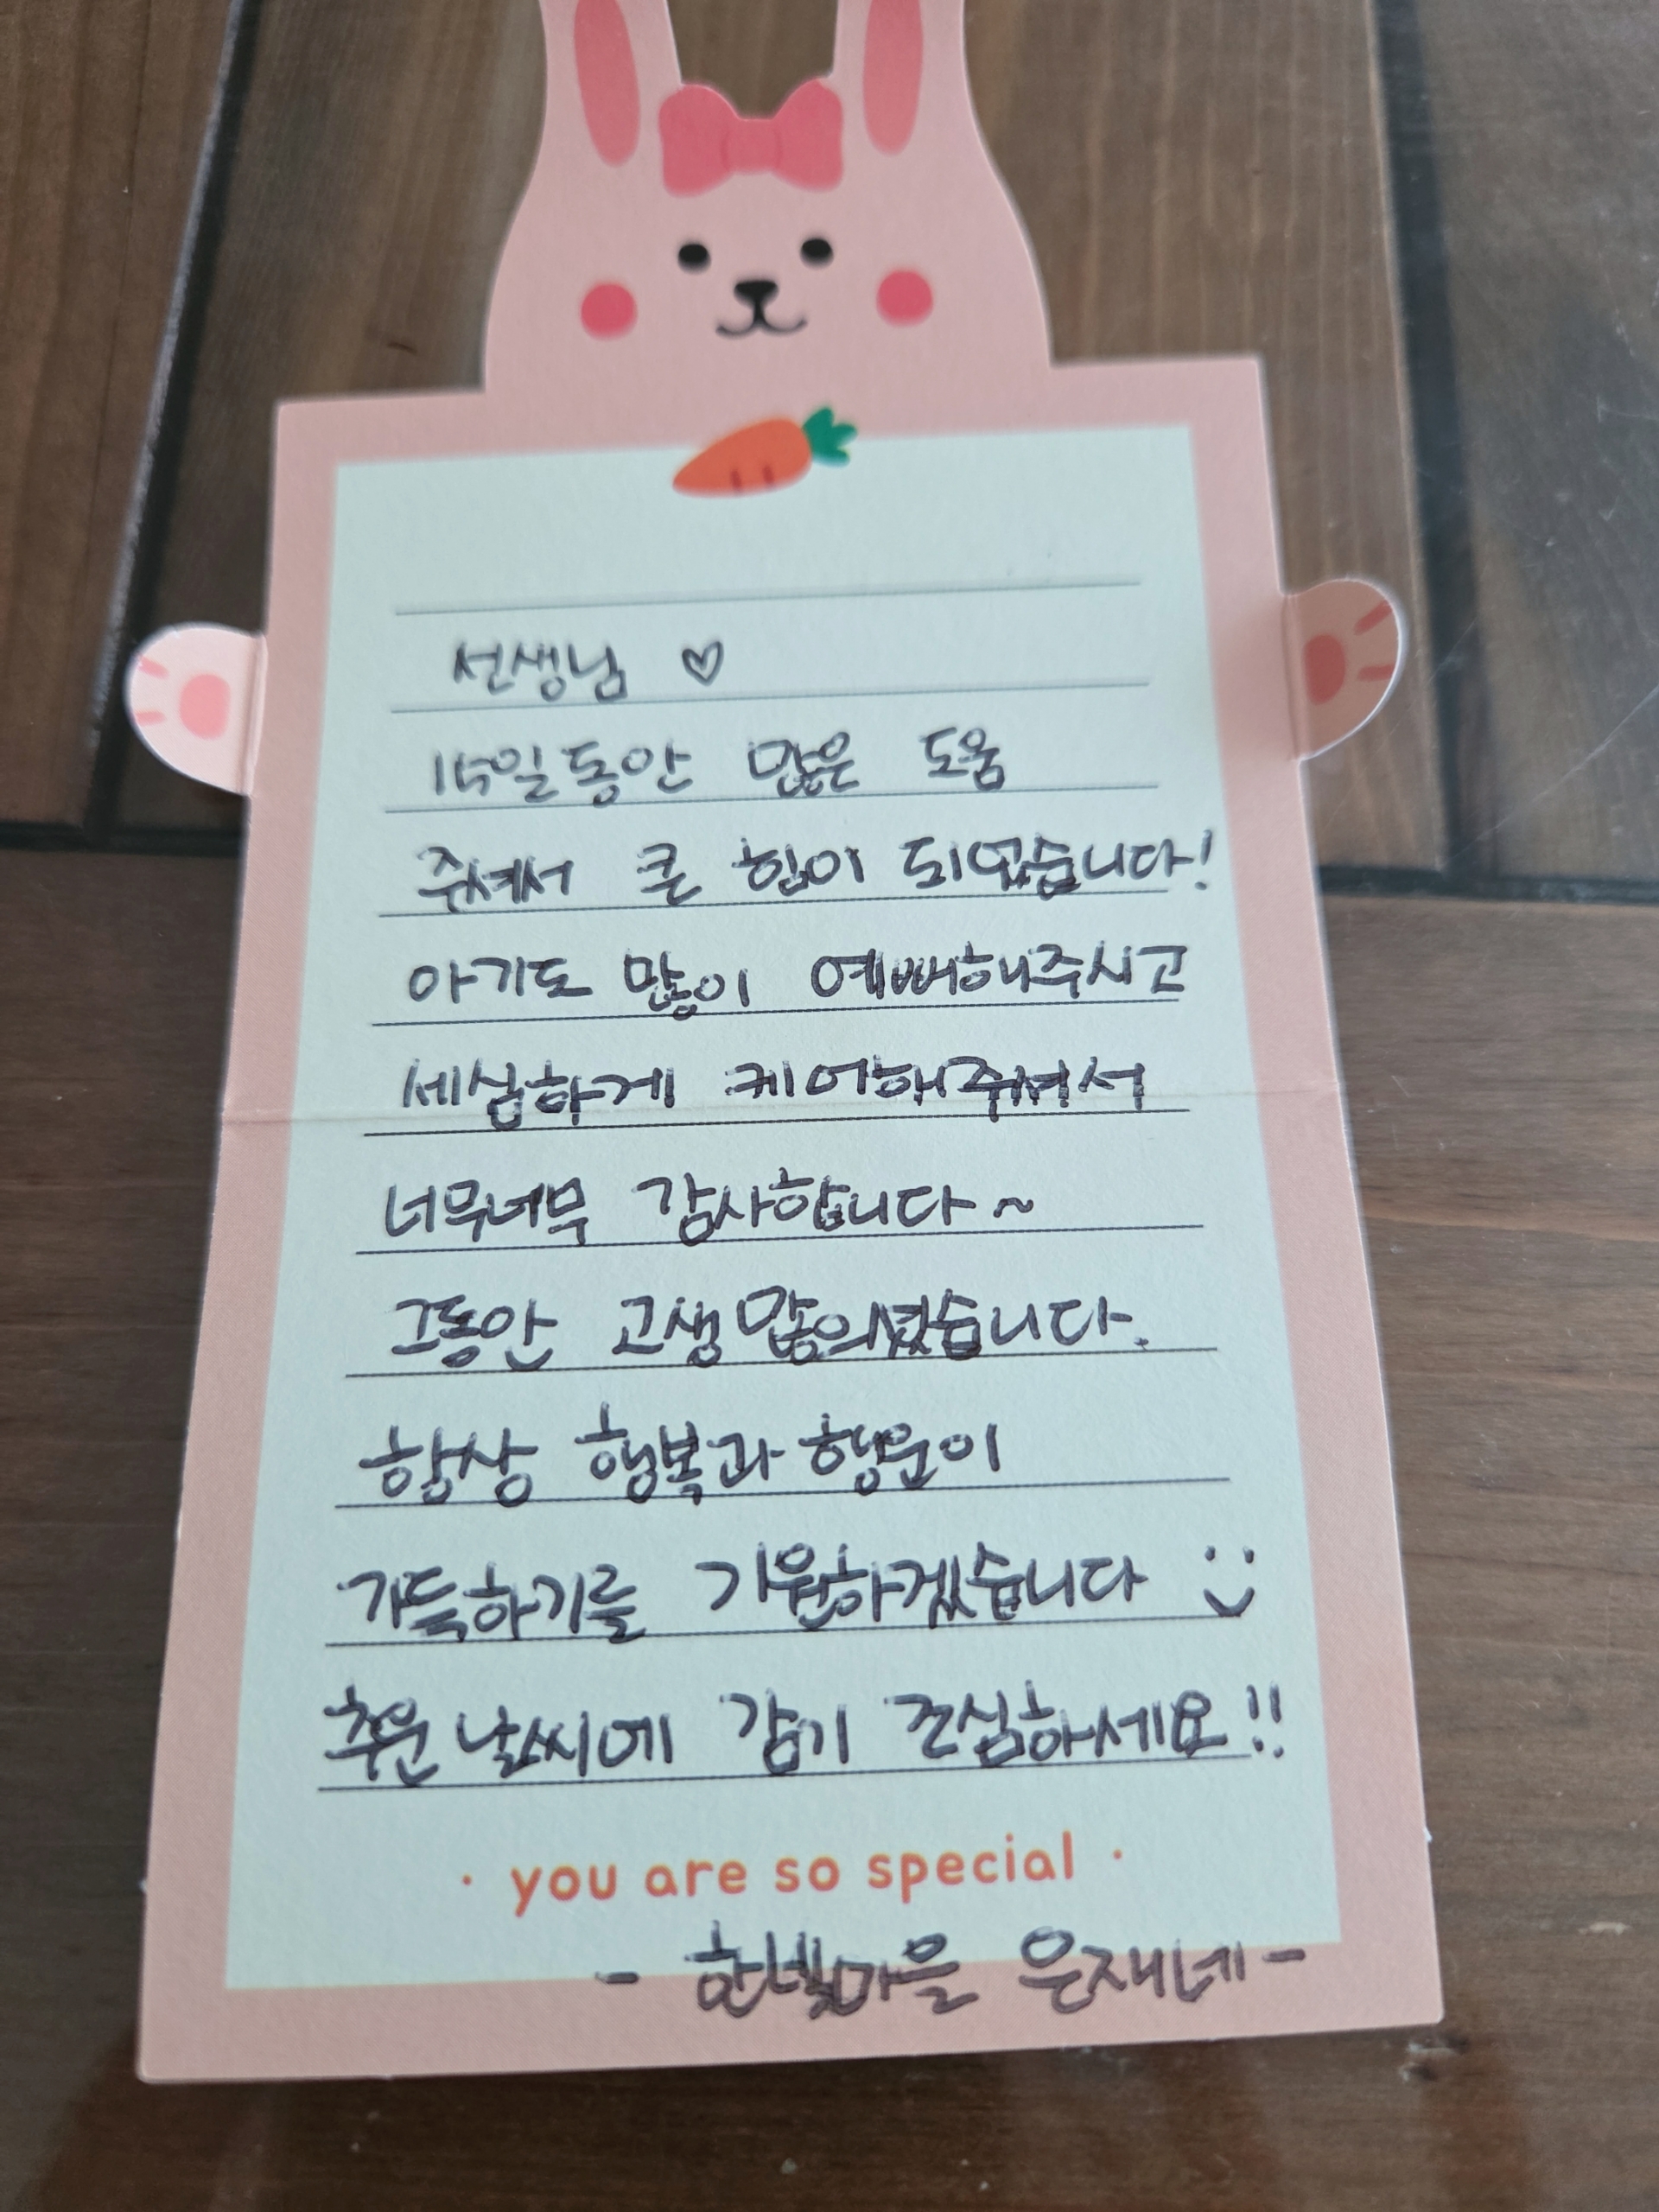 선생님 ♡
15일동안 많은 도움
주셔서 큰 힘이 되었습니다!
아기도 많이 예뻐해주시고
세심하게 케어해주셔서
너무너무 감사합니다~
그동안 고생많으셨습니다.
항상 행복과 행운이
가득하기를 기원하겠습니다 :)
추운 날씨에 감기 조심하세요!!
· you are so special ·
- 한빛마을 은재네 -